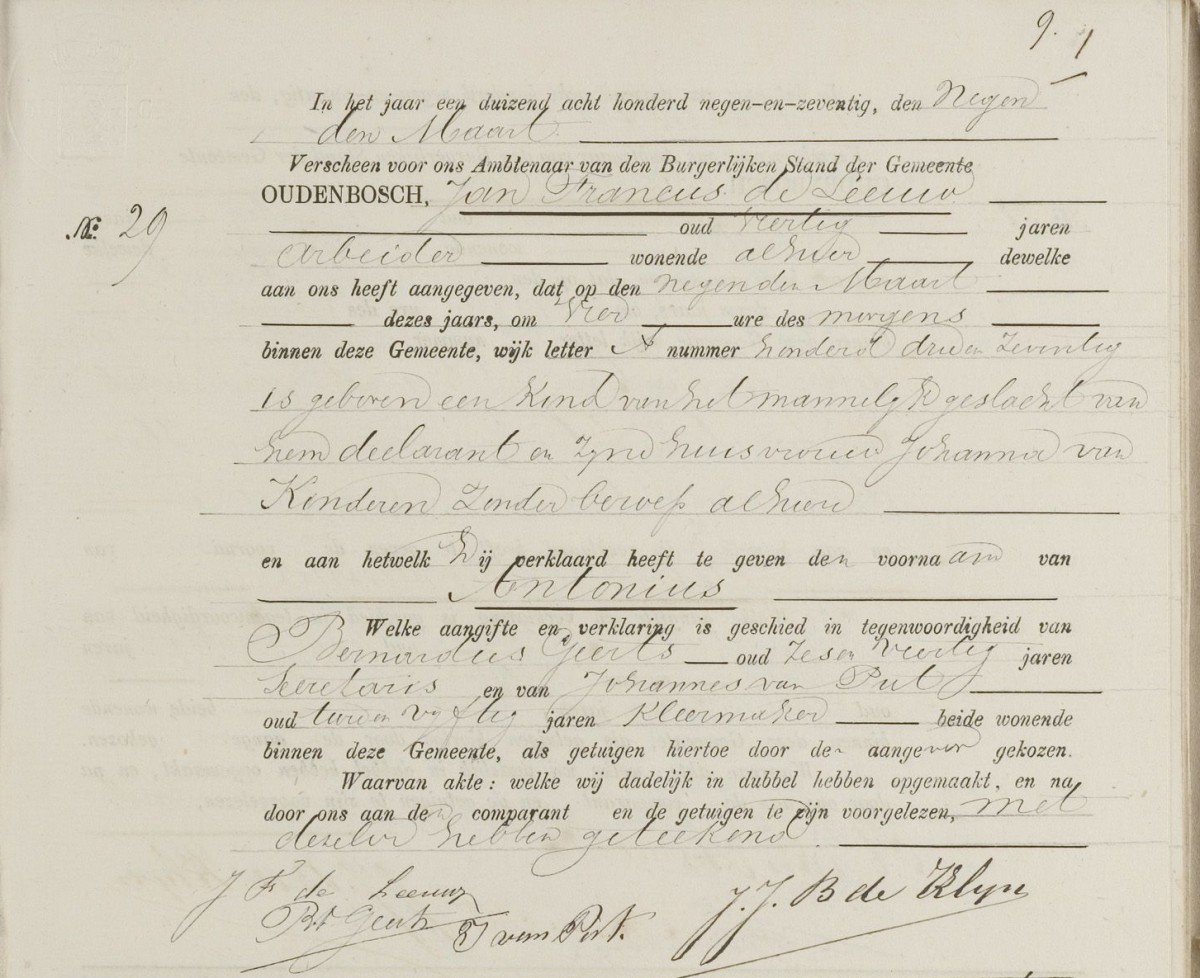 9. 1
In het jaar een duizend acht honderd negen-en-zeventig, den Negen
den Maart
Verscheen voor ons Ambtenaar van den Burgerlijken Stand der Gemeente
OUDENBOSCH, Jan Francus de Leeuw
No. 29
oud Veertig jaren
Arbeider wonende alhier dewelke
aan ons heeft aangegeven, dat op den negenden Maart
dezes jaars, om Vier ure des morgens
binnen deze Gemeente, wijk letter A nummer honderd drie en Zeventig
is geboren een Kind van het mannelijk geslacht van
hem declarant en zyne huisvrouw Johanna van
Konderen Zonder beroep alhier
en aan hetwelk hij verklaard heeft te geven den voornaam van
Antonius
Welke aangifte en verklaring is geschied in tegenwoordigheid van
Bernardus Geerts oud Zes en Veertig jaren
Secretaris en van Johannes van Put
oud twee en vyftig jaren Kleermaker beide wonende
binnen deze Gemeente, als getuigen hiertoe door den aangever gekozen.
Waarvan akte: welke wij dadelijk in dubbel hebben opgemaakt, en na
door ons aan den comparant en de getuigen te zijn voorgelezen, met
dezelve hebben geteekend
J F de Leeuw
Bs Geerts J van Put. J. J. B de Klyn